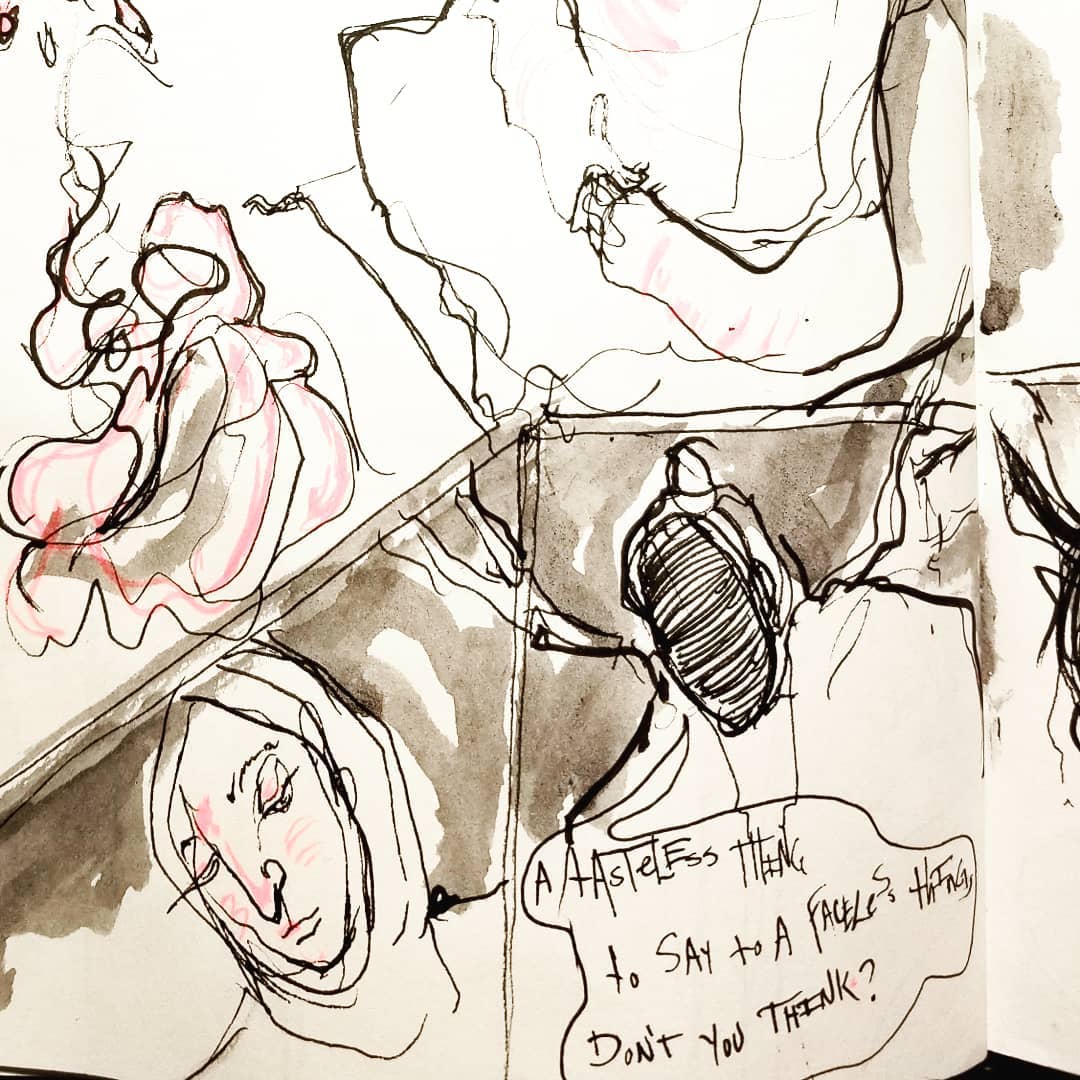 A TASTELESS THING
to SAY to A FACELESS THING,
DON'T YOU THINK?